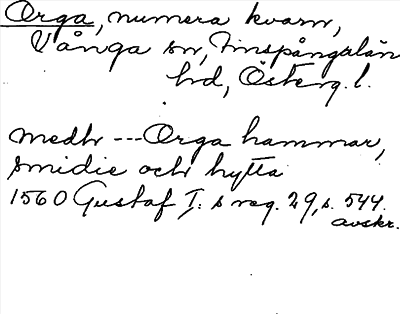 Orga, numera kvarn,
Vånga sn, Finspångalän
hd, Österg. l.
medh --- Orga hammar,
smidie och hytta
1560 Gustaf I: s reg. 29, s. 544.
avskr.